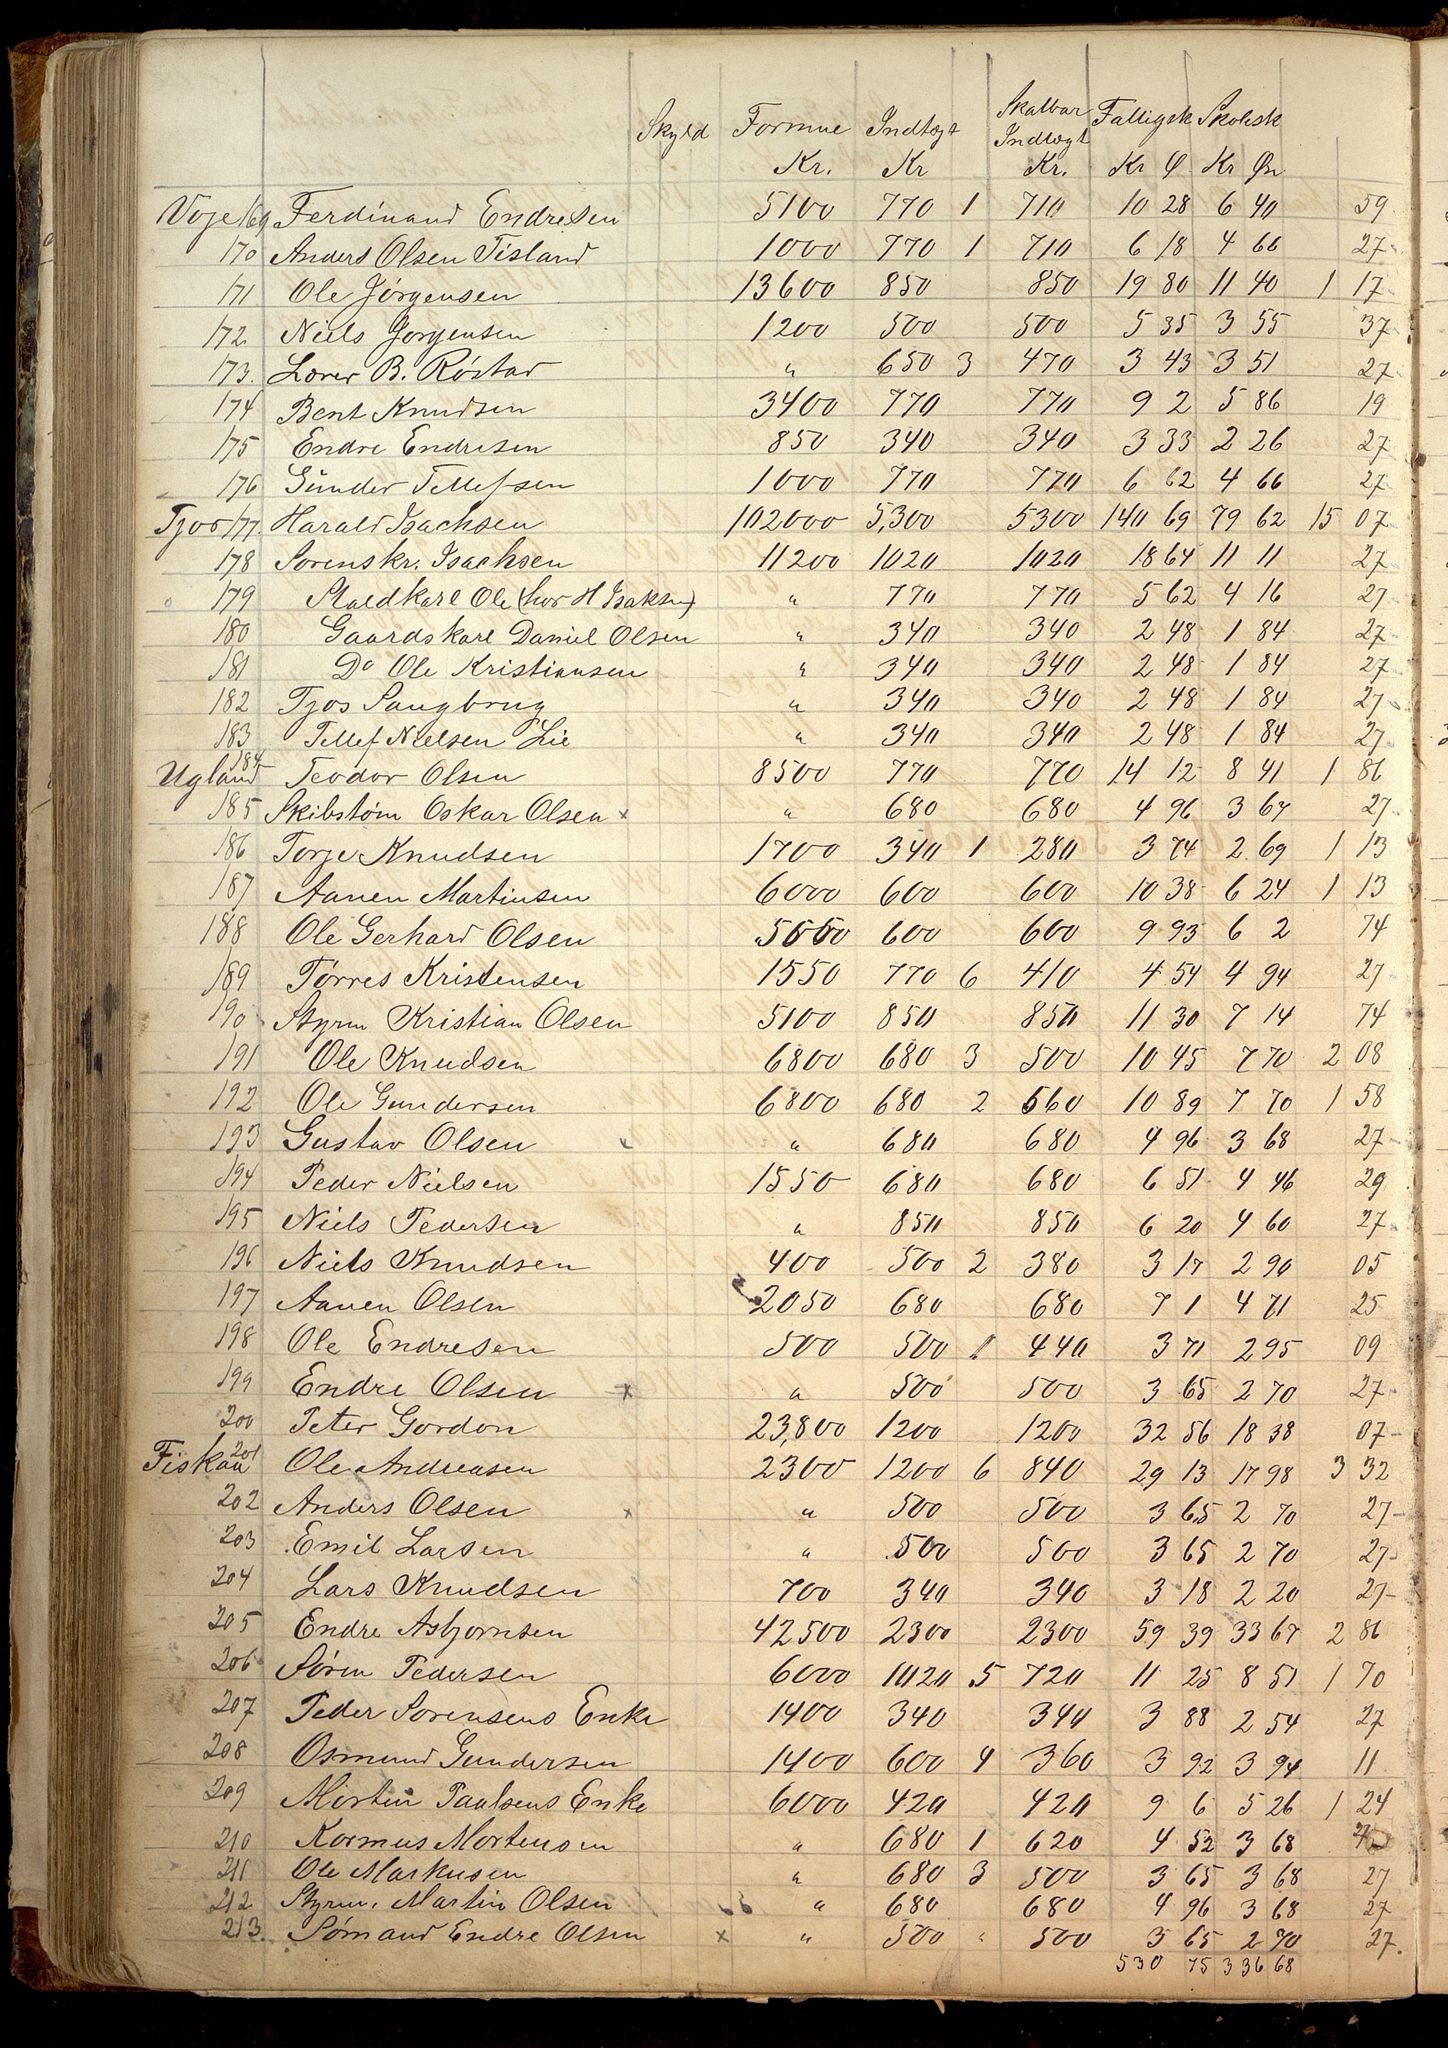 Skyld Formue Indtægt Skatbar Indtægt Fattigsk Skolesk
Kr. Kr Kr. Kr Ø Kr Ør
Voje 169 Ferdinand Endresen 5100 770 1 710 10 28 6 40 59
170 Anders Olsen Tisland 1000 770 1 710 6 18 4 66 27
171 Ole Jørgensen 13600 850 850 19 80 11 40 1 17
172 Niels Jørgensen 1200 500 500 5 35 3 55 37
173. Lærer B. Røstad " 650 3 470 3 43 3 51 27
174 Bent Knudsen 3400 770 770 9 2 5 86 19
175 Endre Endresen 850 340 340 3 33 2 26 27
176 Gunder Tellefsen 1000 770 770 6 62 4 66 27
Tjos 177. Harald Isachsen 102000 5,300 5300 140 69 79 62 15 07
178 Sorenskr. Isachsen 11200 1020 1020 18 64 11 11 27
179 Staldkarl Ole (hos H Isaksen) " 770 770 5 62 4 16 27
180 Gaardskarl Daniel Olsen " 340 340 2 48 1 84 27
181 Do Ole Kristiansen " 340 340 2 48 1 84 27
182 Tjos Saugbrug " 340 340 2 48 1 84 27
183 Tellef Nielsen Lie " 340 340 2 48 1 84 27
Ugland 184 Teodor Olsen 8500 770 770 14 12 8 41 1 86
185 Skibstøm Oskar Olsen x " 680 680 4 96 3 67 27
186 Torje Knudsen 1700 340 1 280 3 74 2 69 1 13
187 Aanen Martinsen 6000 600 600 10 38 6 24 1 13
188 Ole Gerhard Olsen 5000 600 600 9 93 6 2 74
189 Tørres Kristensen 1550 770 6 410 4 54 4 94 27
190 Styrm Kristian Olsen 5100 850 850 11 30 7 14 74
191 Ole Knudsen 6800 680 3 500 10 45 7 70 2 08
192 Ole Gundersen 6800 680 2 560 10 89 7 70 1 58
193 Gustav Olsen x " 680 680 4 96 3 68 27
194 Peder Nielsen 1550 680 680 6 51 4 46 29
195 Niels Pedersen " 850 850 6 20 4 60 27
196 Niels Knudsen 400 500 2 380 3 17 2 90 05
197 Aanen Olsen 2050 680 680 7 1 4 71 25
198 Ole Endresen 500 500 1 440 3 71 2 95 09
199 Endre Olsen x " 500 500 3 65 2 70 27
200 Peter Gordon 23,800 1200 1200 32 56 18 38 07
Fiskaa 201 Ole Andreasen 2300 1200 6 840 29 13 17 98 3 32
202 Anders Olsen x " 500 500 3 65 2 70 27
203 Emil Larsen " 500 500 3 65 2 70 27
204 Lars Knudsen 700 340 340 3 18 2 20 27
205 Endre Asbjornsen 42500 2300 2300 59 39 33 67 2 86
206 Søren Pedersen 6000 1020 5 720 11 25 8 51 1 70
207 Peder Sorensens Enke 1400 340 340 3 88 2 54 27
208 Osmund Gundersen 1400 600 4 360 3 92 3 94 11
209 Morten Paulsens Enke 6000 420 420 9 6 5 26 1 24
210 Rasmus Mortensen " 680 1 620 4 52 3 68
211 Ole Markusen " 680 3 500 3 65 3 68 27
212 Styrm. Martin Olsen " 680 680 4 96 3 68 27
213. Sømand Endre Olsen x " 500 " 500 3 65 2 70 27.
530 75 336 68